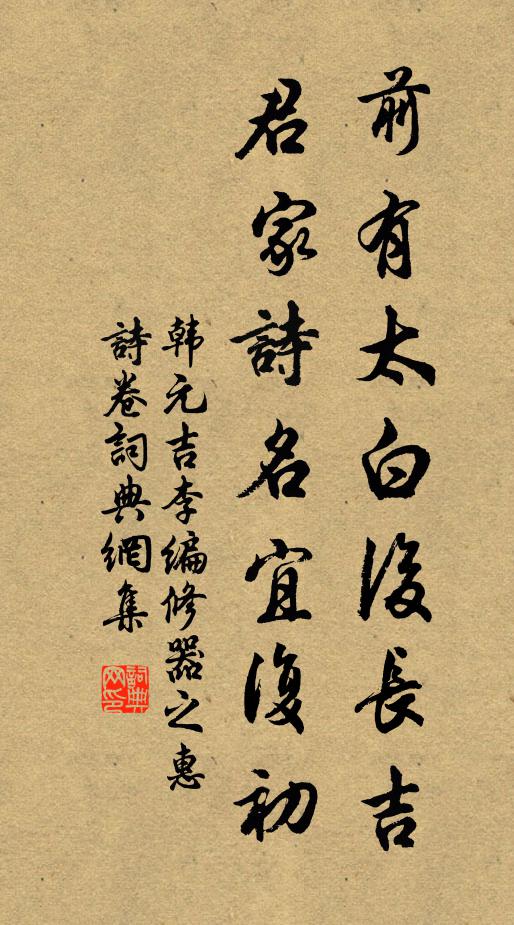 前有太白後長吉
君家詩名宜復初
韩元吉李编修器之惠
詩卷詞典網集
詞典网印